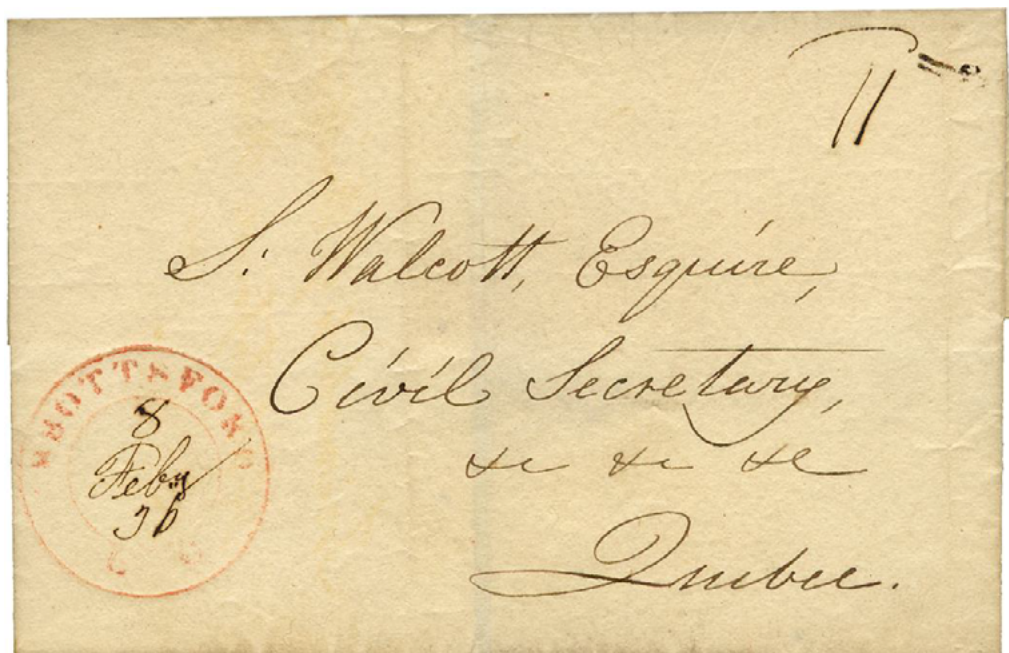 11
S. Walcott, Esquire,
Civil Secretary,
&c &c &c
Quebec.
ABBOTTSFORD
8
Feby
36
L C